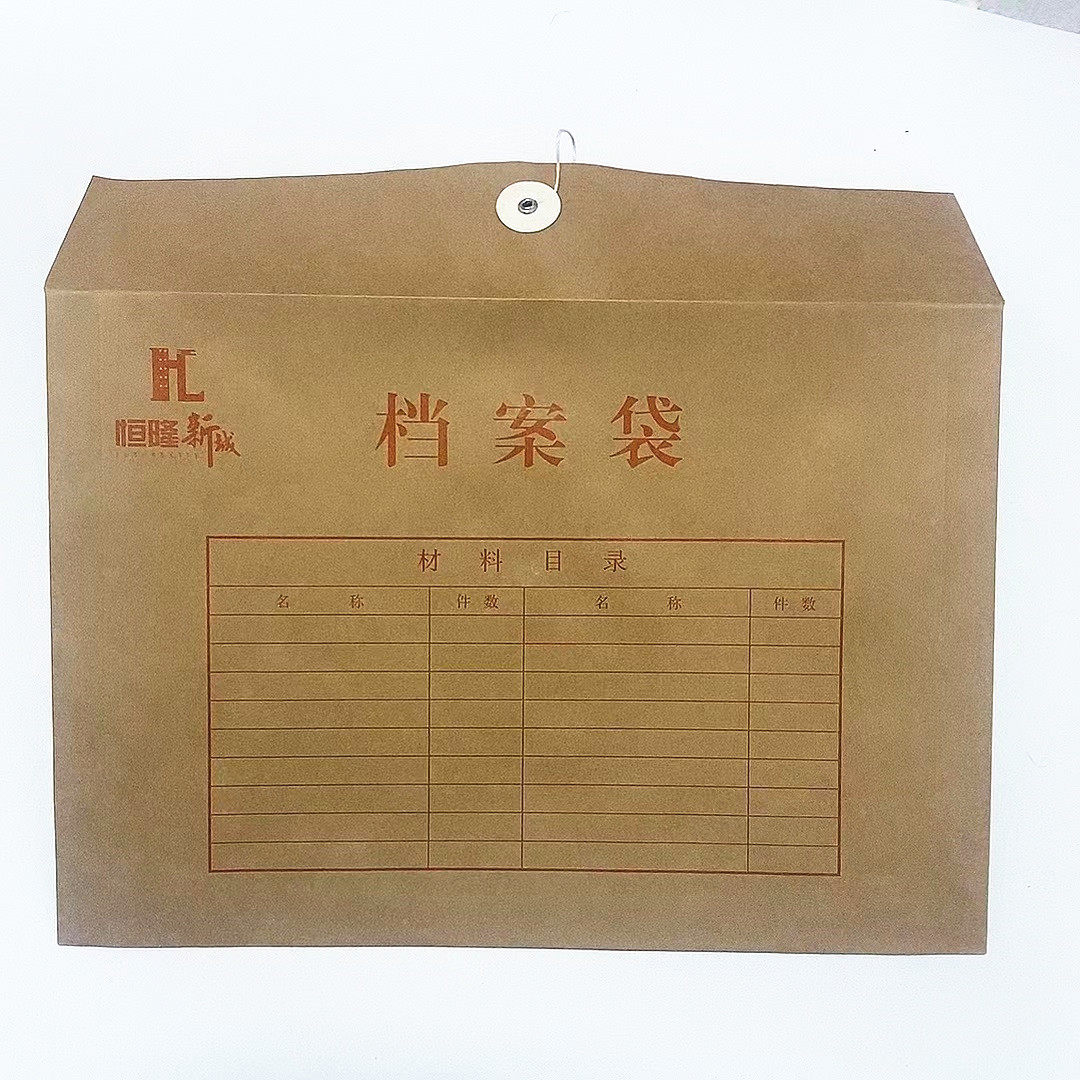 HL
恒隆新城
档案袋
材料目录
名称 件数 名称 件数